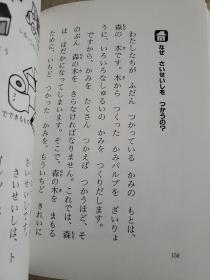 なぜ さいせいしを つかうの?
わたしたちが ふだん つかっている かみの もとは、
森の 木です。木から つくった かみパルプを ざいりょ
うに、いろいろなしゅるいの かみを つくりだします。
ですから、かみを たくさん つかえば つかうほど、そ
のぶん 森の木を きらなければなりません。これでは、森
は はだかになってしまいます。そこで、森の木を まもる
ために、いちど つかった かみを、もういちど きれいに
さいせいしは、ト
できるもの
150